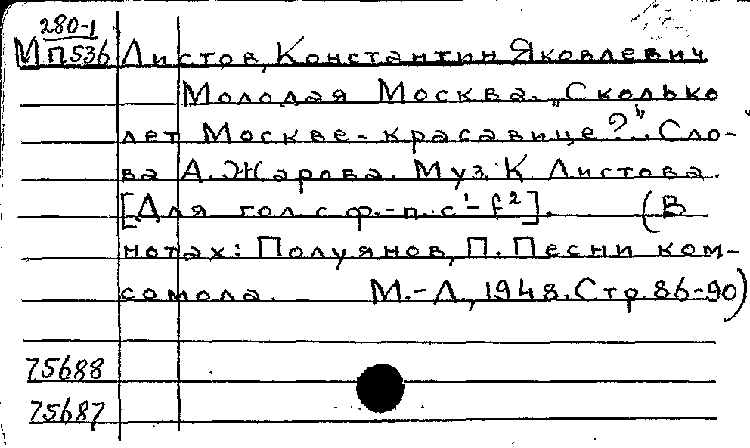 280-1
МП536 Листов, Константин Яковлевич
Молодая Москва. „Сколько
лет Москве-красавице?". Сло-
ва А. Жарова. Муз. К. Листова.
[Для гол. с ф.-п. c¹-f²]. (В
нотах: Полуянов, П. Песни ком-
сомола. М.-Л., 1948. Стр. 86-90)
75688
75687